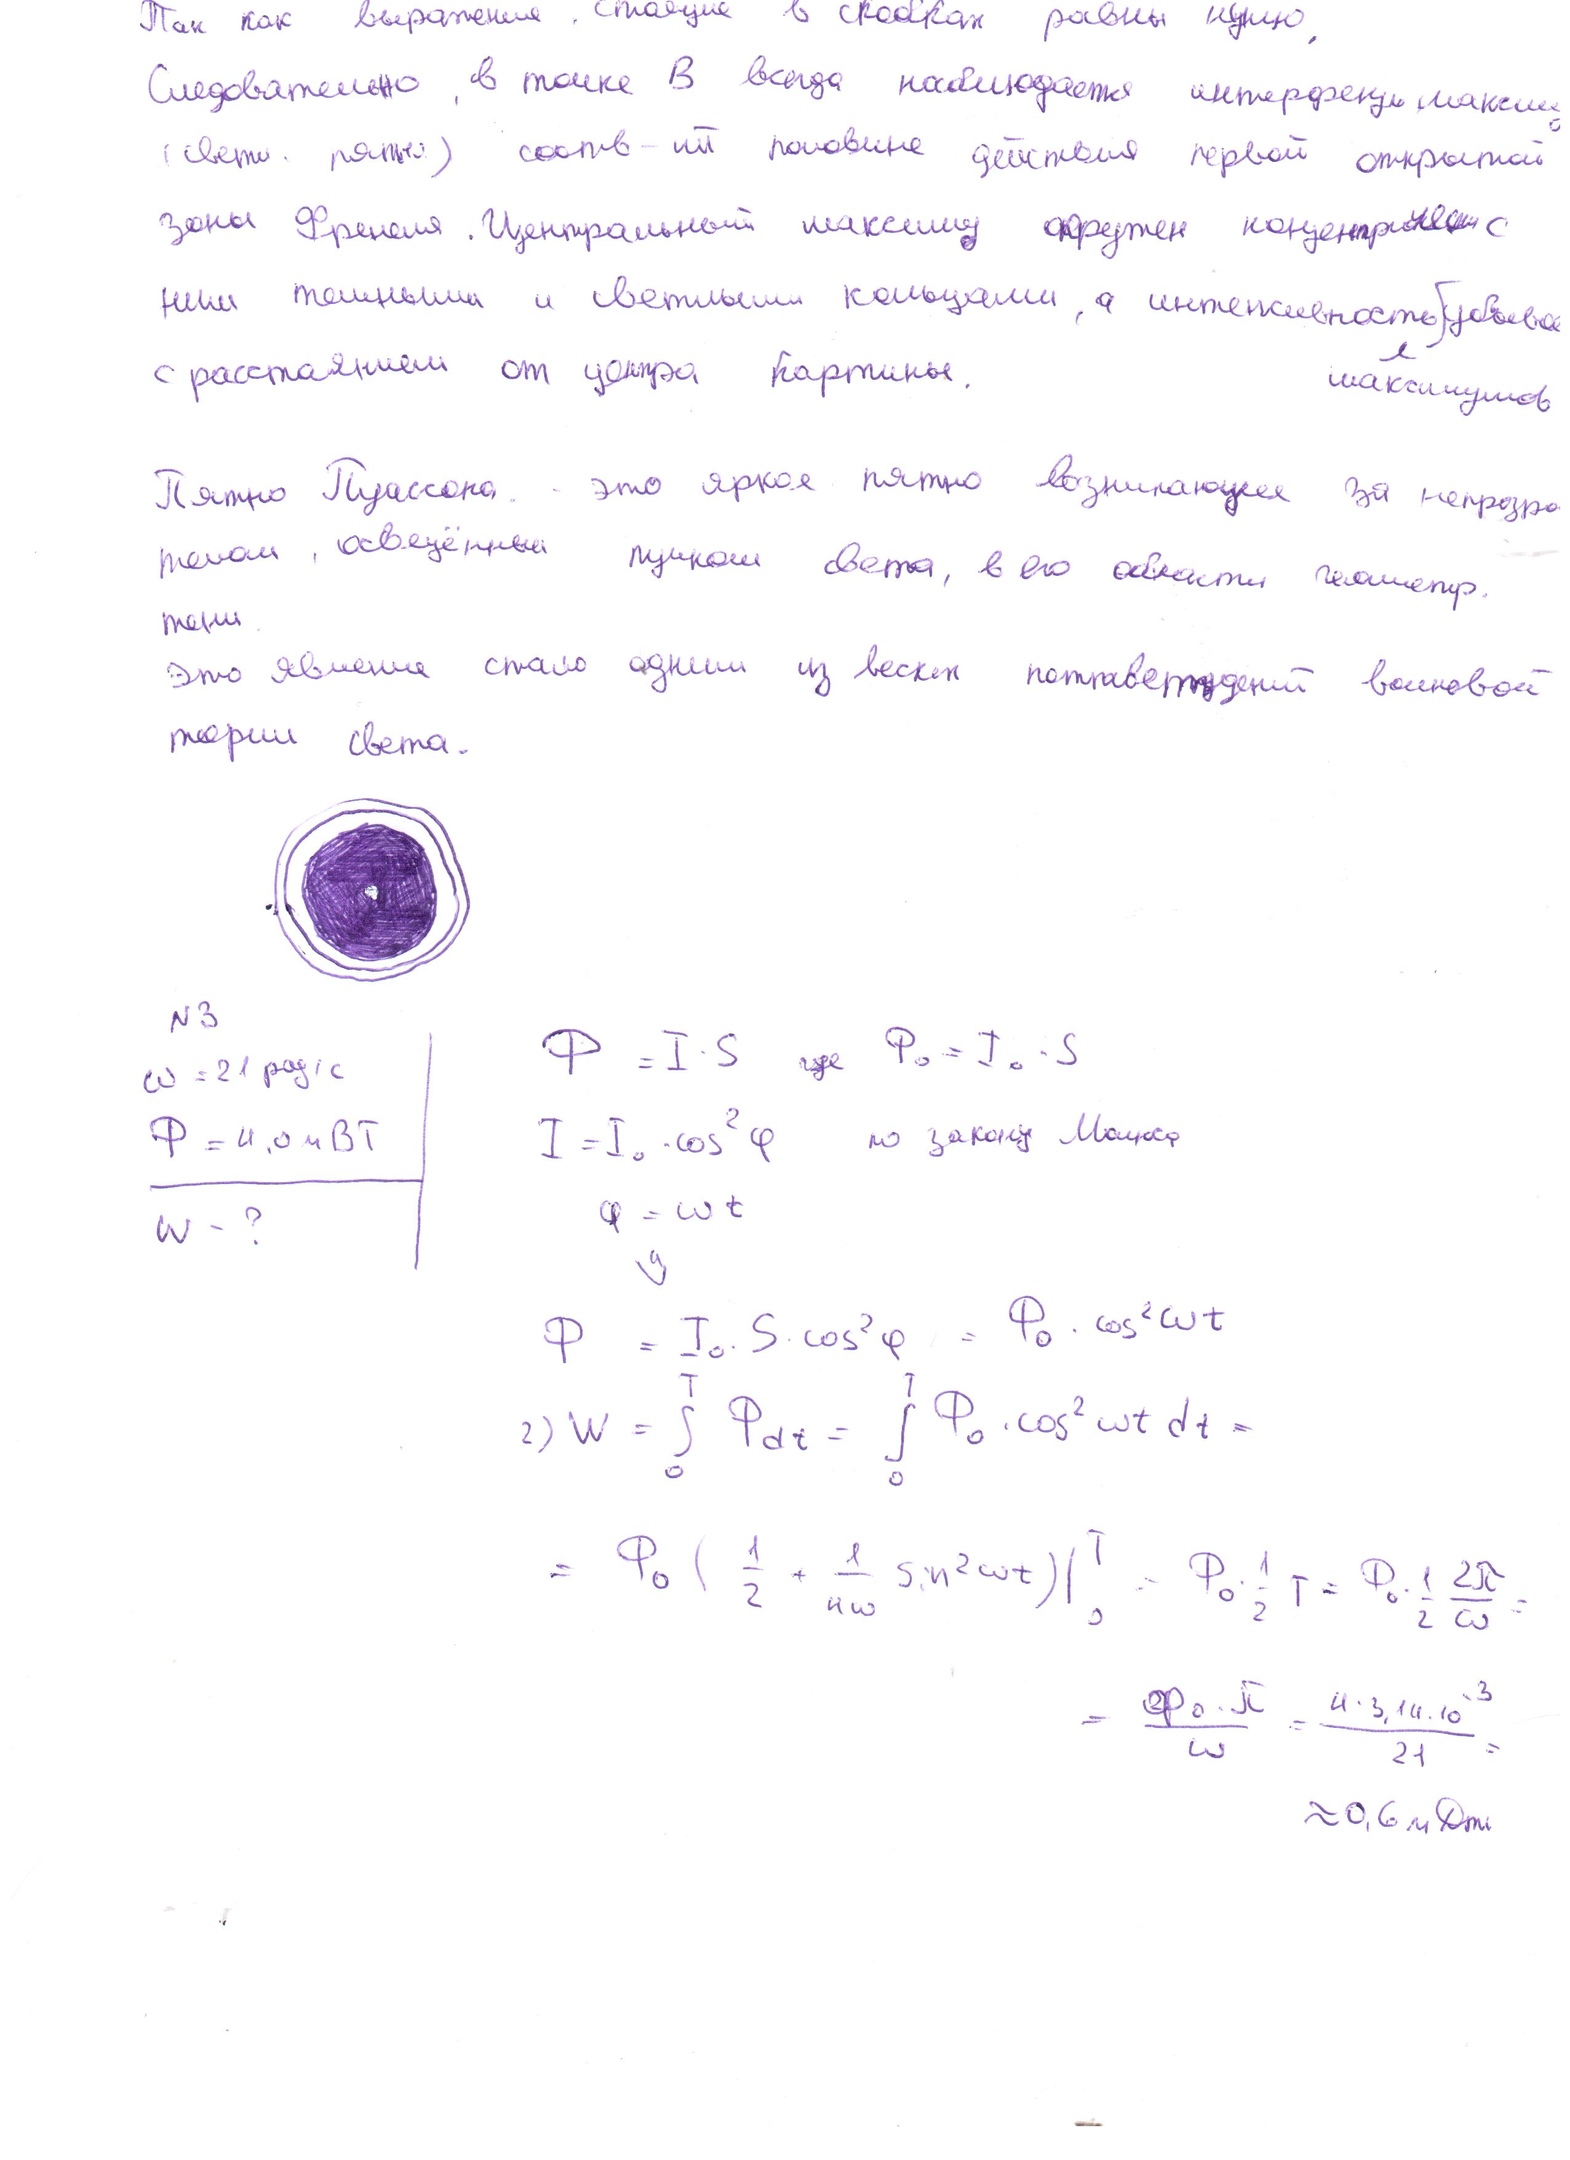 Так как выражения, стоящие в скобках равны нулю,
Следовательно, в точке В всегда наблюдается интерференц. максим
(светл. пятно) соотв-ий половине действия первой открытой
зоны Френеля. Центральный максимум окружен концентрическими с
ним темными и светлыми кольцами, а интенсивность убывае
максимумов
с расстоянием от центра картины.
Пятно Пуассона - это яркое пятно возникающее за непрозра
телом, освещённым пучком света, в его области геометр.
тени.
Это явление стало одним из веских потраверждений волновой
теории света.
N3
ω = 21 рад/с
Φ = 4,0 мВТ
W - ?
Φ = I · S где Φ₀ = I₀ · S
I = I₀ · cos² φ по закону Малюса
φ = ωt
Φ = I₀ · S · cos² φ = Φ₀ · cos² ωt
2) W = ∫₀ᵀ Φdt = ∫₀ᵀ Φ₀ · cos² ωt dt =
= Φ₀ ( 1/2 + 1/4ω sin2ωt)|₀ᵀ = Φ₀ · 1/2 T = Φ₀ · 1/2 2π/ω =
= Φ₀ · π/ω = 4 · 3,14 · 10⁻³/21 =
≈ 0,6 мДж